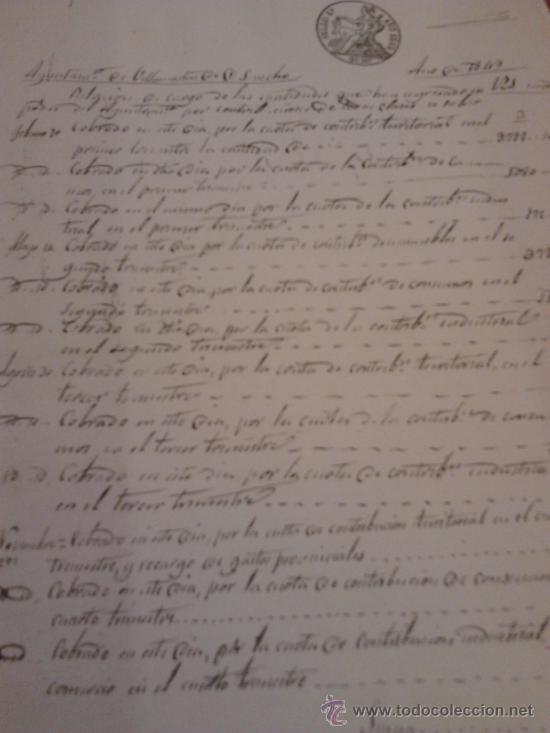 Ayuntamto de Villa de Dn Sancho Año de 1849
Relacion de cargo de las cantidades que han ingresado
por contribuciones de
Febrero Cobrado en este dia, por la cuota de contribn territorial en el
primer trimestre la cantidad de
Yd. Yd. Cobrado en dho dia por la cuota de la contribn de consu
mos, en el primer trimestre
Yd. Yd. Cobrado en el mismo dia por la cuota de la contribn indus
trial, en el primer trimestre
Mayo 12 Cobrado en este dia por la cuota de contribn de inmuebles en el se
gundo trimestre
Yd. Yd. Cobrado, en este dia, por la cuota de contribn de consumos en el
segundo trimestre
Yd. Yd. Cobrado en dho dia, por la cuota de la contribn industrial
en el segundo trimestre
Agosto 20 Cobrado en este dia, por la cuota de contribn territorial, en el
tercer trimestre
Yd. Yd. Cobrado en este dia, por la cuota de la contribn de consu
mos, en el tercer trimestre
Yd. Yd. Cobrado en este dia por la cuota de contribn industrial
en el tercer trimestre
Noviembre Cobrado en este dia, por la cuota de contribucion territorial en el
trimestre, y recargo de gastos provinciales
Cobrado en este dia, por la cuota de contribucion de consumos
cuarto trimestre
Cobrado en este dia, por la cuota de contribucion industrial
comercio en el cuarto trimestre
Suma
todocoleccion.net